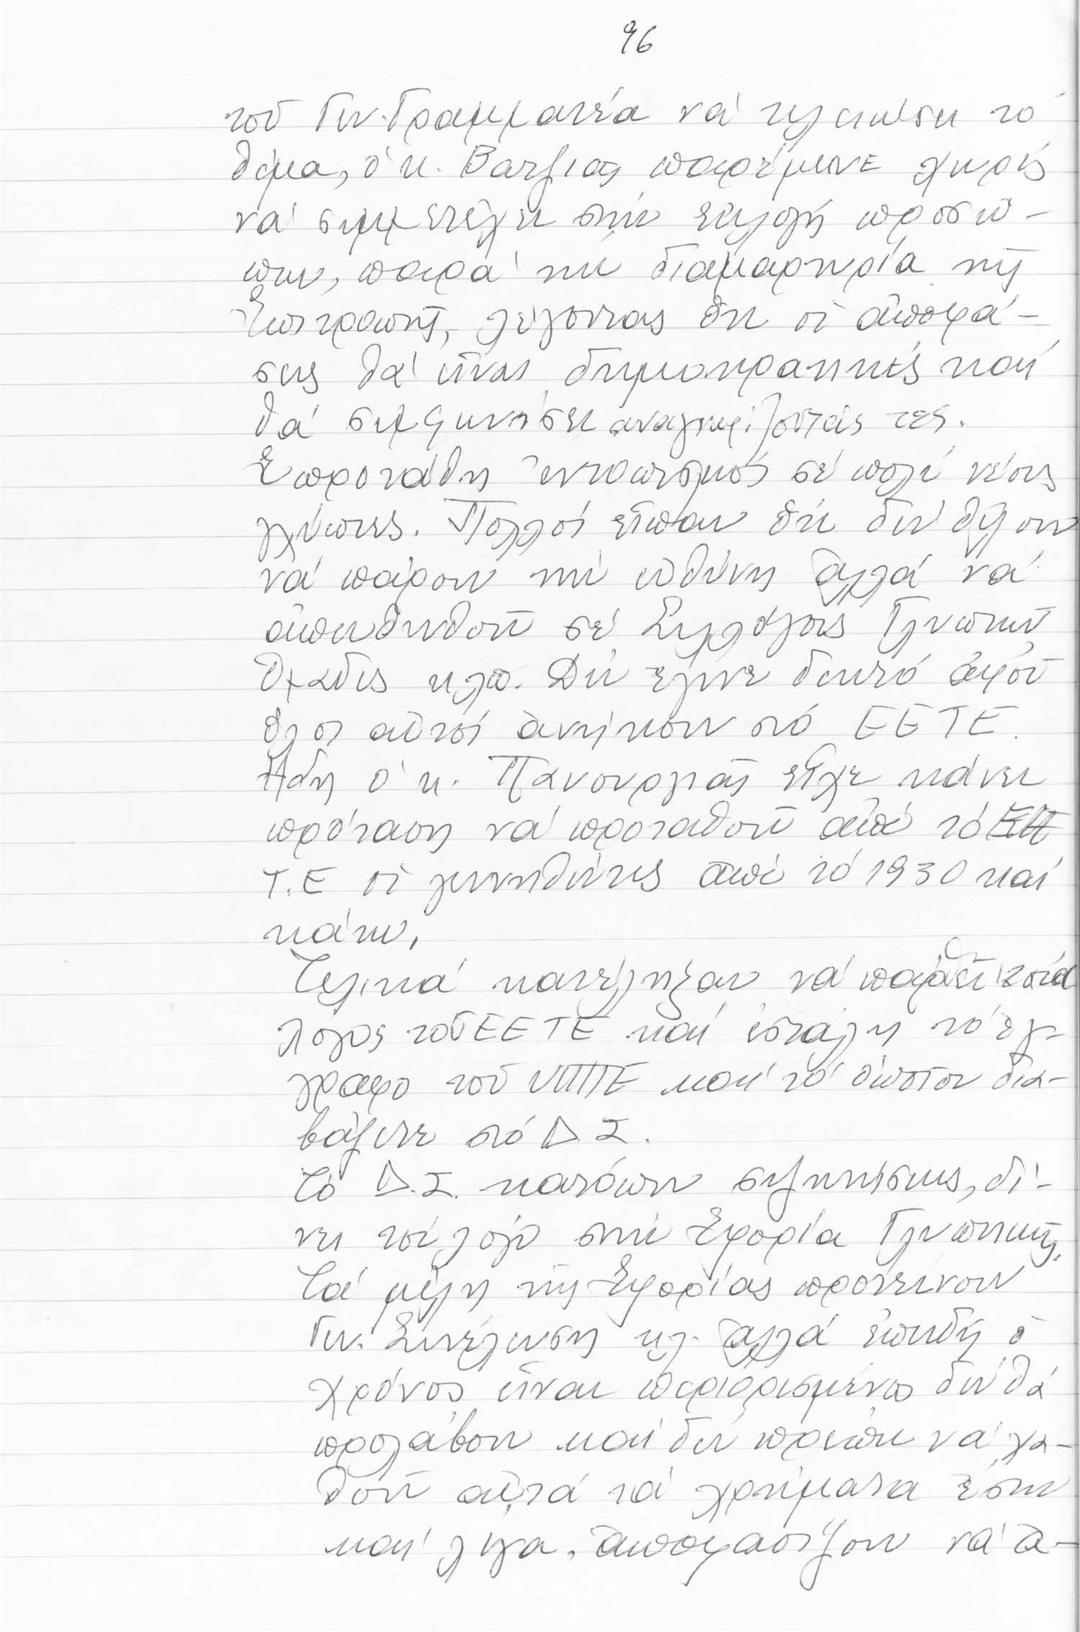 96
τοῦ Γεν. Γραμματέα νά τελειώσει τό
θέμα, ὁ κ. παρέμεινε χωρίς
νά συμμετέχει στήν ἐκλογή προσώ-
πων, παρά τήν διαμαρτυρία τῆς
Ἐπιτροπῆς, λέγοντας ὅτι οἱ ἀποφά-
σεις θά εἶναι δημοκρατικές καί
θά συμφωνήσει ἀναγνωρίζοντάς τες.
Ἐπροτάθη ἐντοπισμός σέ πολύ νέους
γλύπτες. Πολλοί εἶπαν ὅτι δέν θέλουν
νά πάρουν τήν εὐθύνη ἀλλά νά
ἀπευθυνθοῦν σέ Συλλόγους Γλυπτῶν
Ὁμάδες κλπ. Δέν ἔγινε δεκτό ἀφοῦ
ὅλοι αὐτοί ἀνήκουν στό ΕΕΤΕ.
Ἤδη ὁ κ. Πανουργιᾶς εἶχε κάνει
πρόταση νά προταθοῦν ἀπό τό ΕΕ
Τ.Ε οἱ γεννηθέντες ἀπό τό 1930 καί
κάτω.
Τελικά κατέληξαν νά κατά
λογος τοῦ ΕΕΤΕ καί ἐστάλη τό ἔγ-
γραφο τοῦ ΥΠΠΕ καί τό ὁποῖον δια-
βάζετε στό Δ Σ.
Τό Δ.Σ. κατόπιν συζητήσεως, δί-
νει τό λόγο στήν Ἐφορία Γλυπτικῆς.
Τά μέλη τῆς Ἐφορίας προτείνουν
Γεν. Συνέλευση κλ. ἀλλά ἐπειδή ὁ
χρόνος εἶναι περιορισμένος δέν θά
προλάβουν καί δέν πρέπει νά χα-
θοῦν αὐτά τά χρήματα ἔστω
καί λίγα, ἀποφασίζουν νά ἀ-